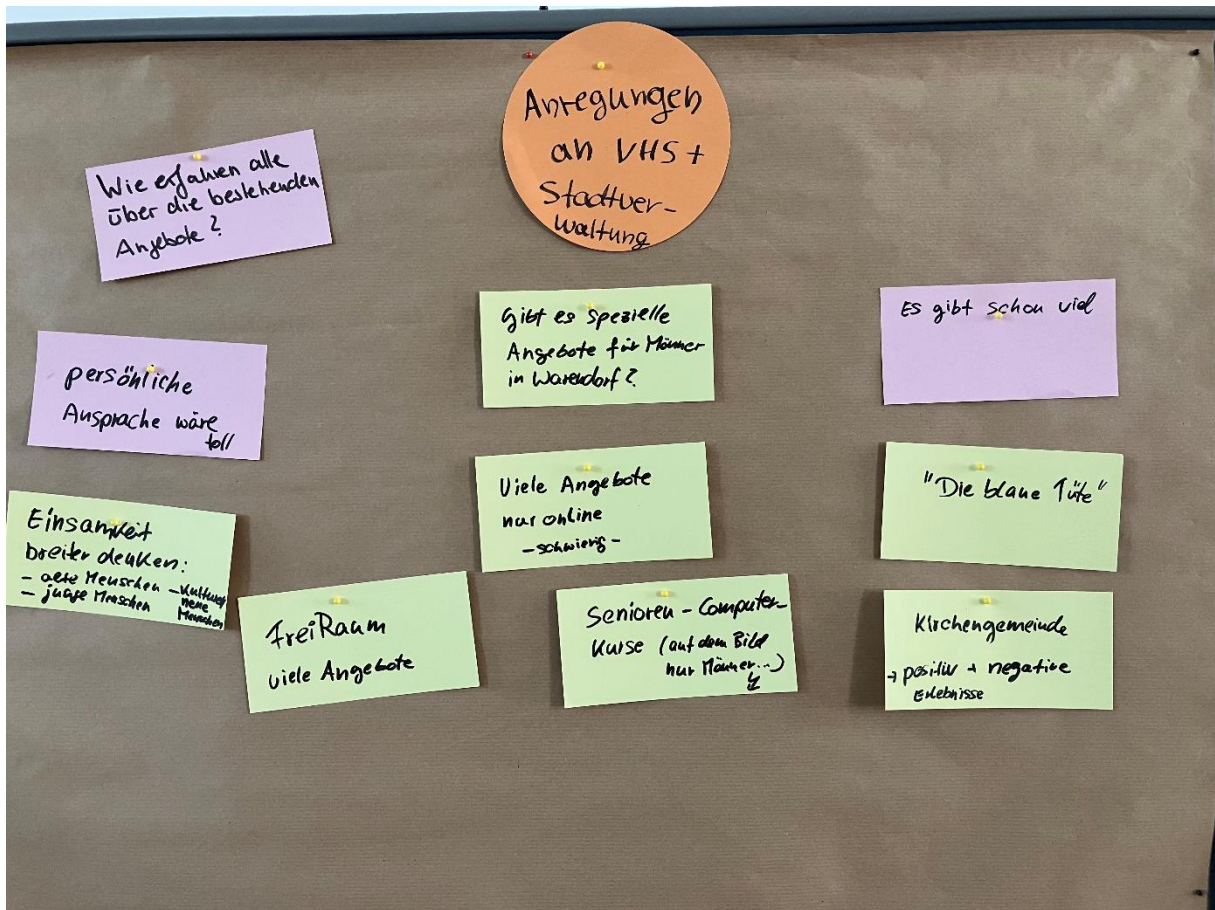 Anregungen
an VHS +
Stadtver-
waltung
Wie erfahren alle
über die bestehenden
Angebote?
persönliche
Ansprache wäre
toll
Einsamkeit
breiter denken:
- alte Menschen
- junge Menschen
- Kultur
neue
Menschen
FreiRaum
viele Angebote
Gibt es spezielle
Angebote für Männer
in Warendorf?
Viele Angebote
nur online
- schwierig -
Senioren - Computer-
Kurse (auf dem Bild
nur Männer...)
Es gibt schon viel
"Die blaue Tüte"
Kirchengemeinde
→ positiv + negative
Erlebnisse